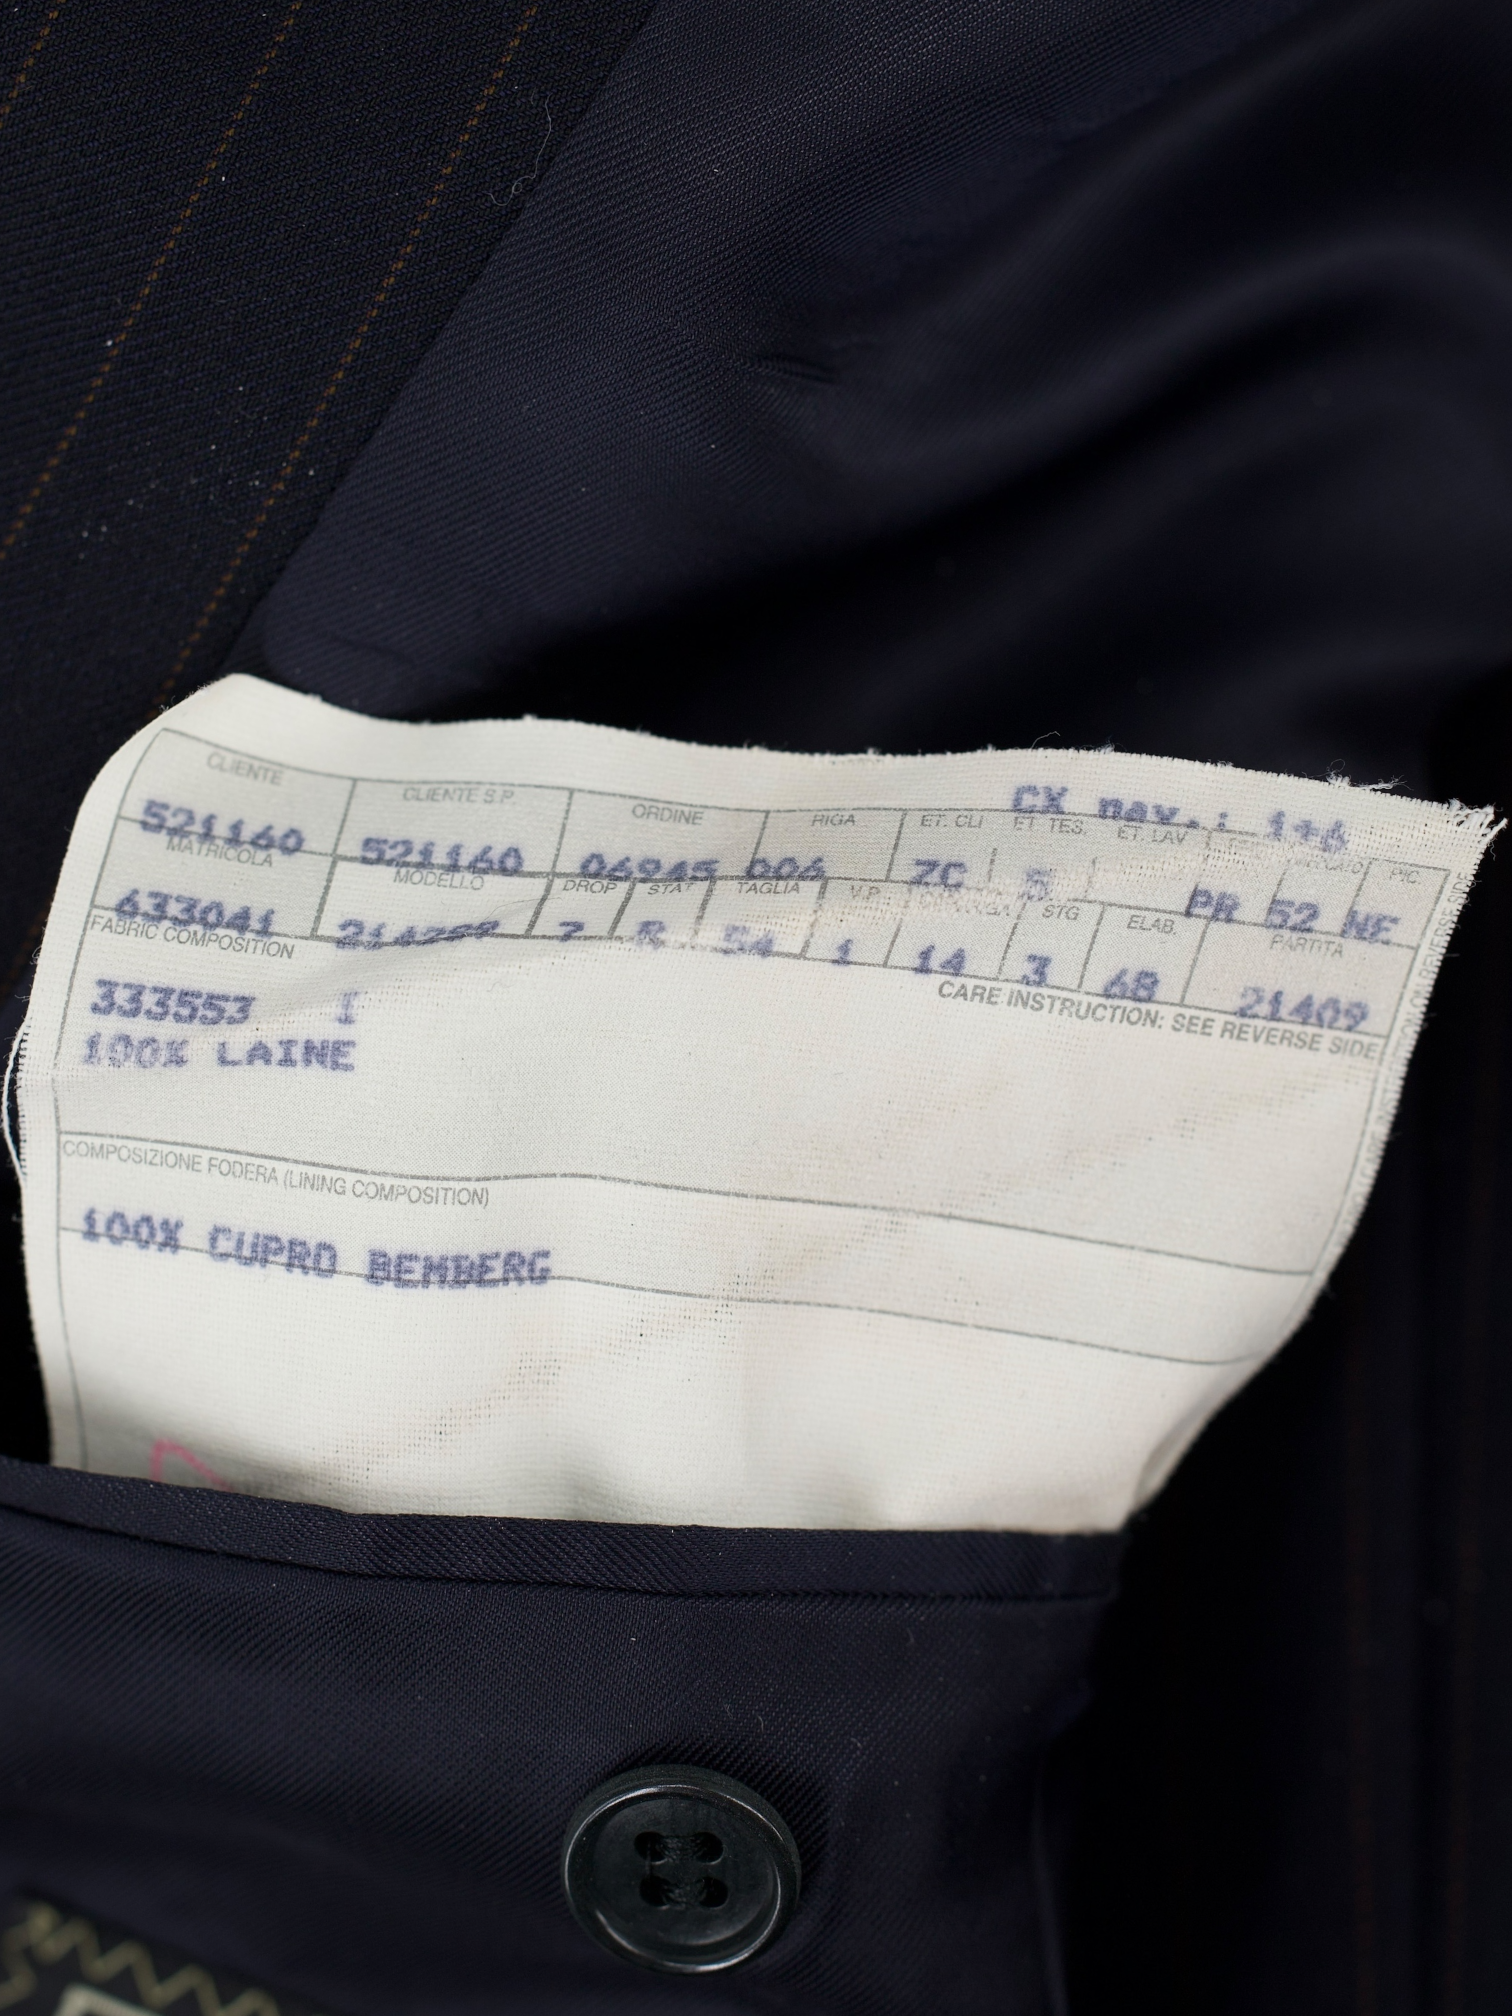 CX nav.: 1+6
CLIENTE CLIENTE S.P. ORDINE RIGA ET. CLI ET. TES. ET. LAV PIC.
521160 521160 06945 006 ZC 5 PR 52 NE
MATRICOLA MODELLO DROP STAT TAGLIA V.P. STG ELAB. PARTITA
633041 7 R 54 1 14 3 68 21409
FABRIC COMPOSITION CARE INSTRUCTION: SEE REVERSE SIDE
333553 I
100% LAINE
COMPOSIZIONE FODERA (LINING COMPOSITION)
100% CUPRO BEMBERG